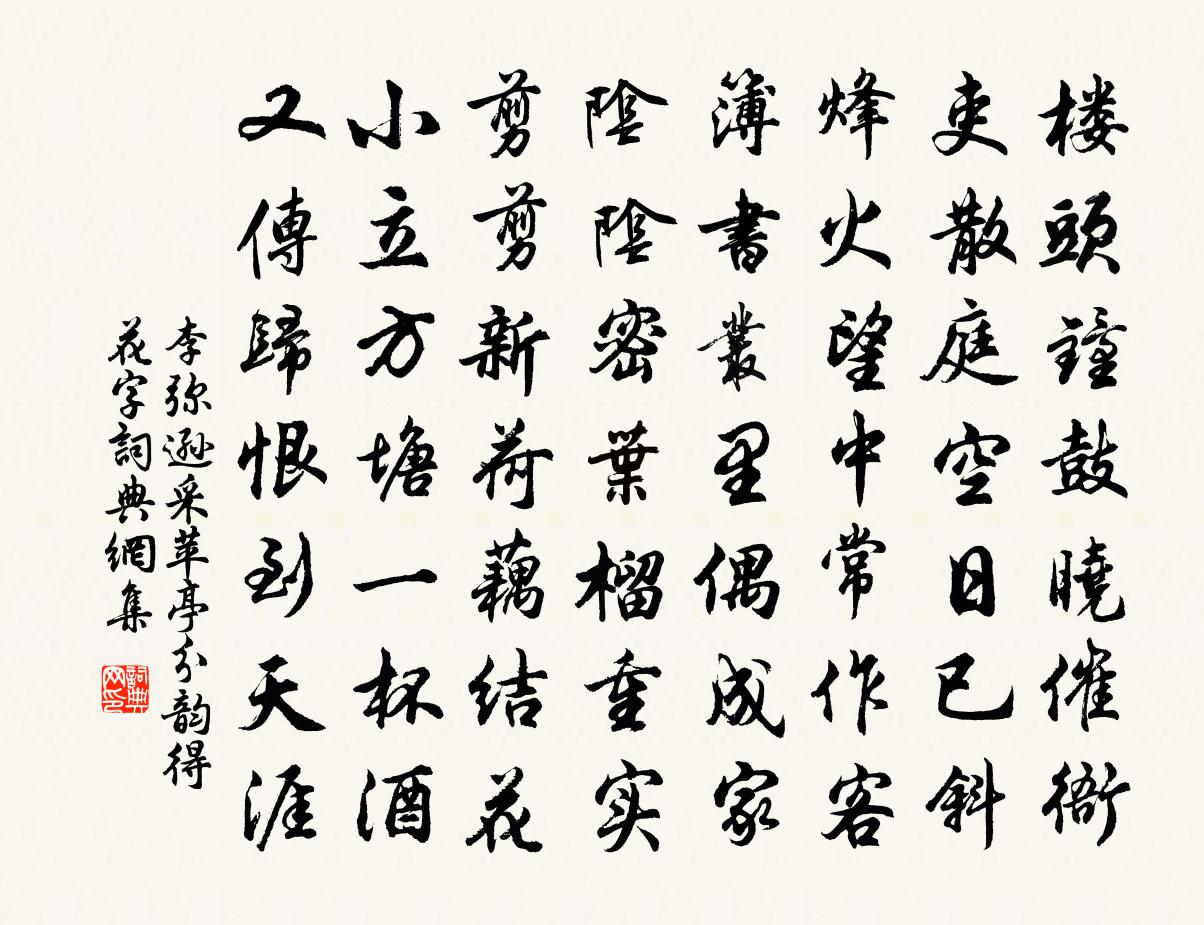 楼頭鐘鼓曉催衙
吏散庭空日已斜
烽火望中常作客
簿書叢里偶成家
陰陰密葉榴重实
剪剪新荷藕结花
小立方塘一杯酒
又傳歸恨到天涯
李弥遜采苹亭分韵得
花字詞典網集
詞典网印